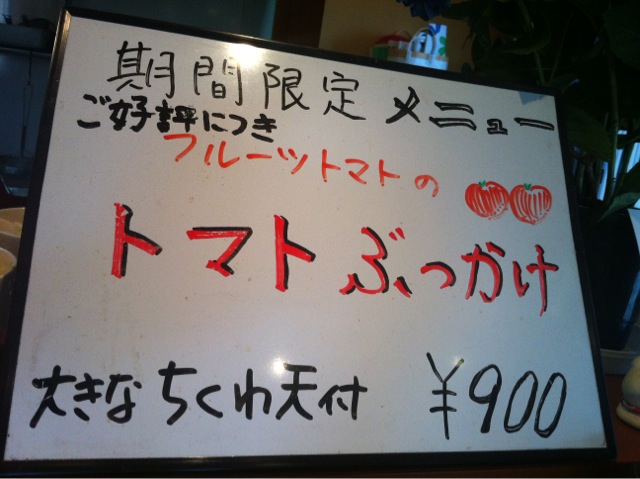 期間限定メニュー
ご好評につき
フルーツトマトの
トマトぶっかけ
大きなちくわ天付 ¥900